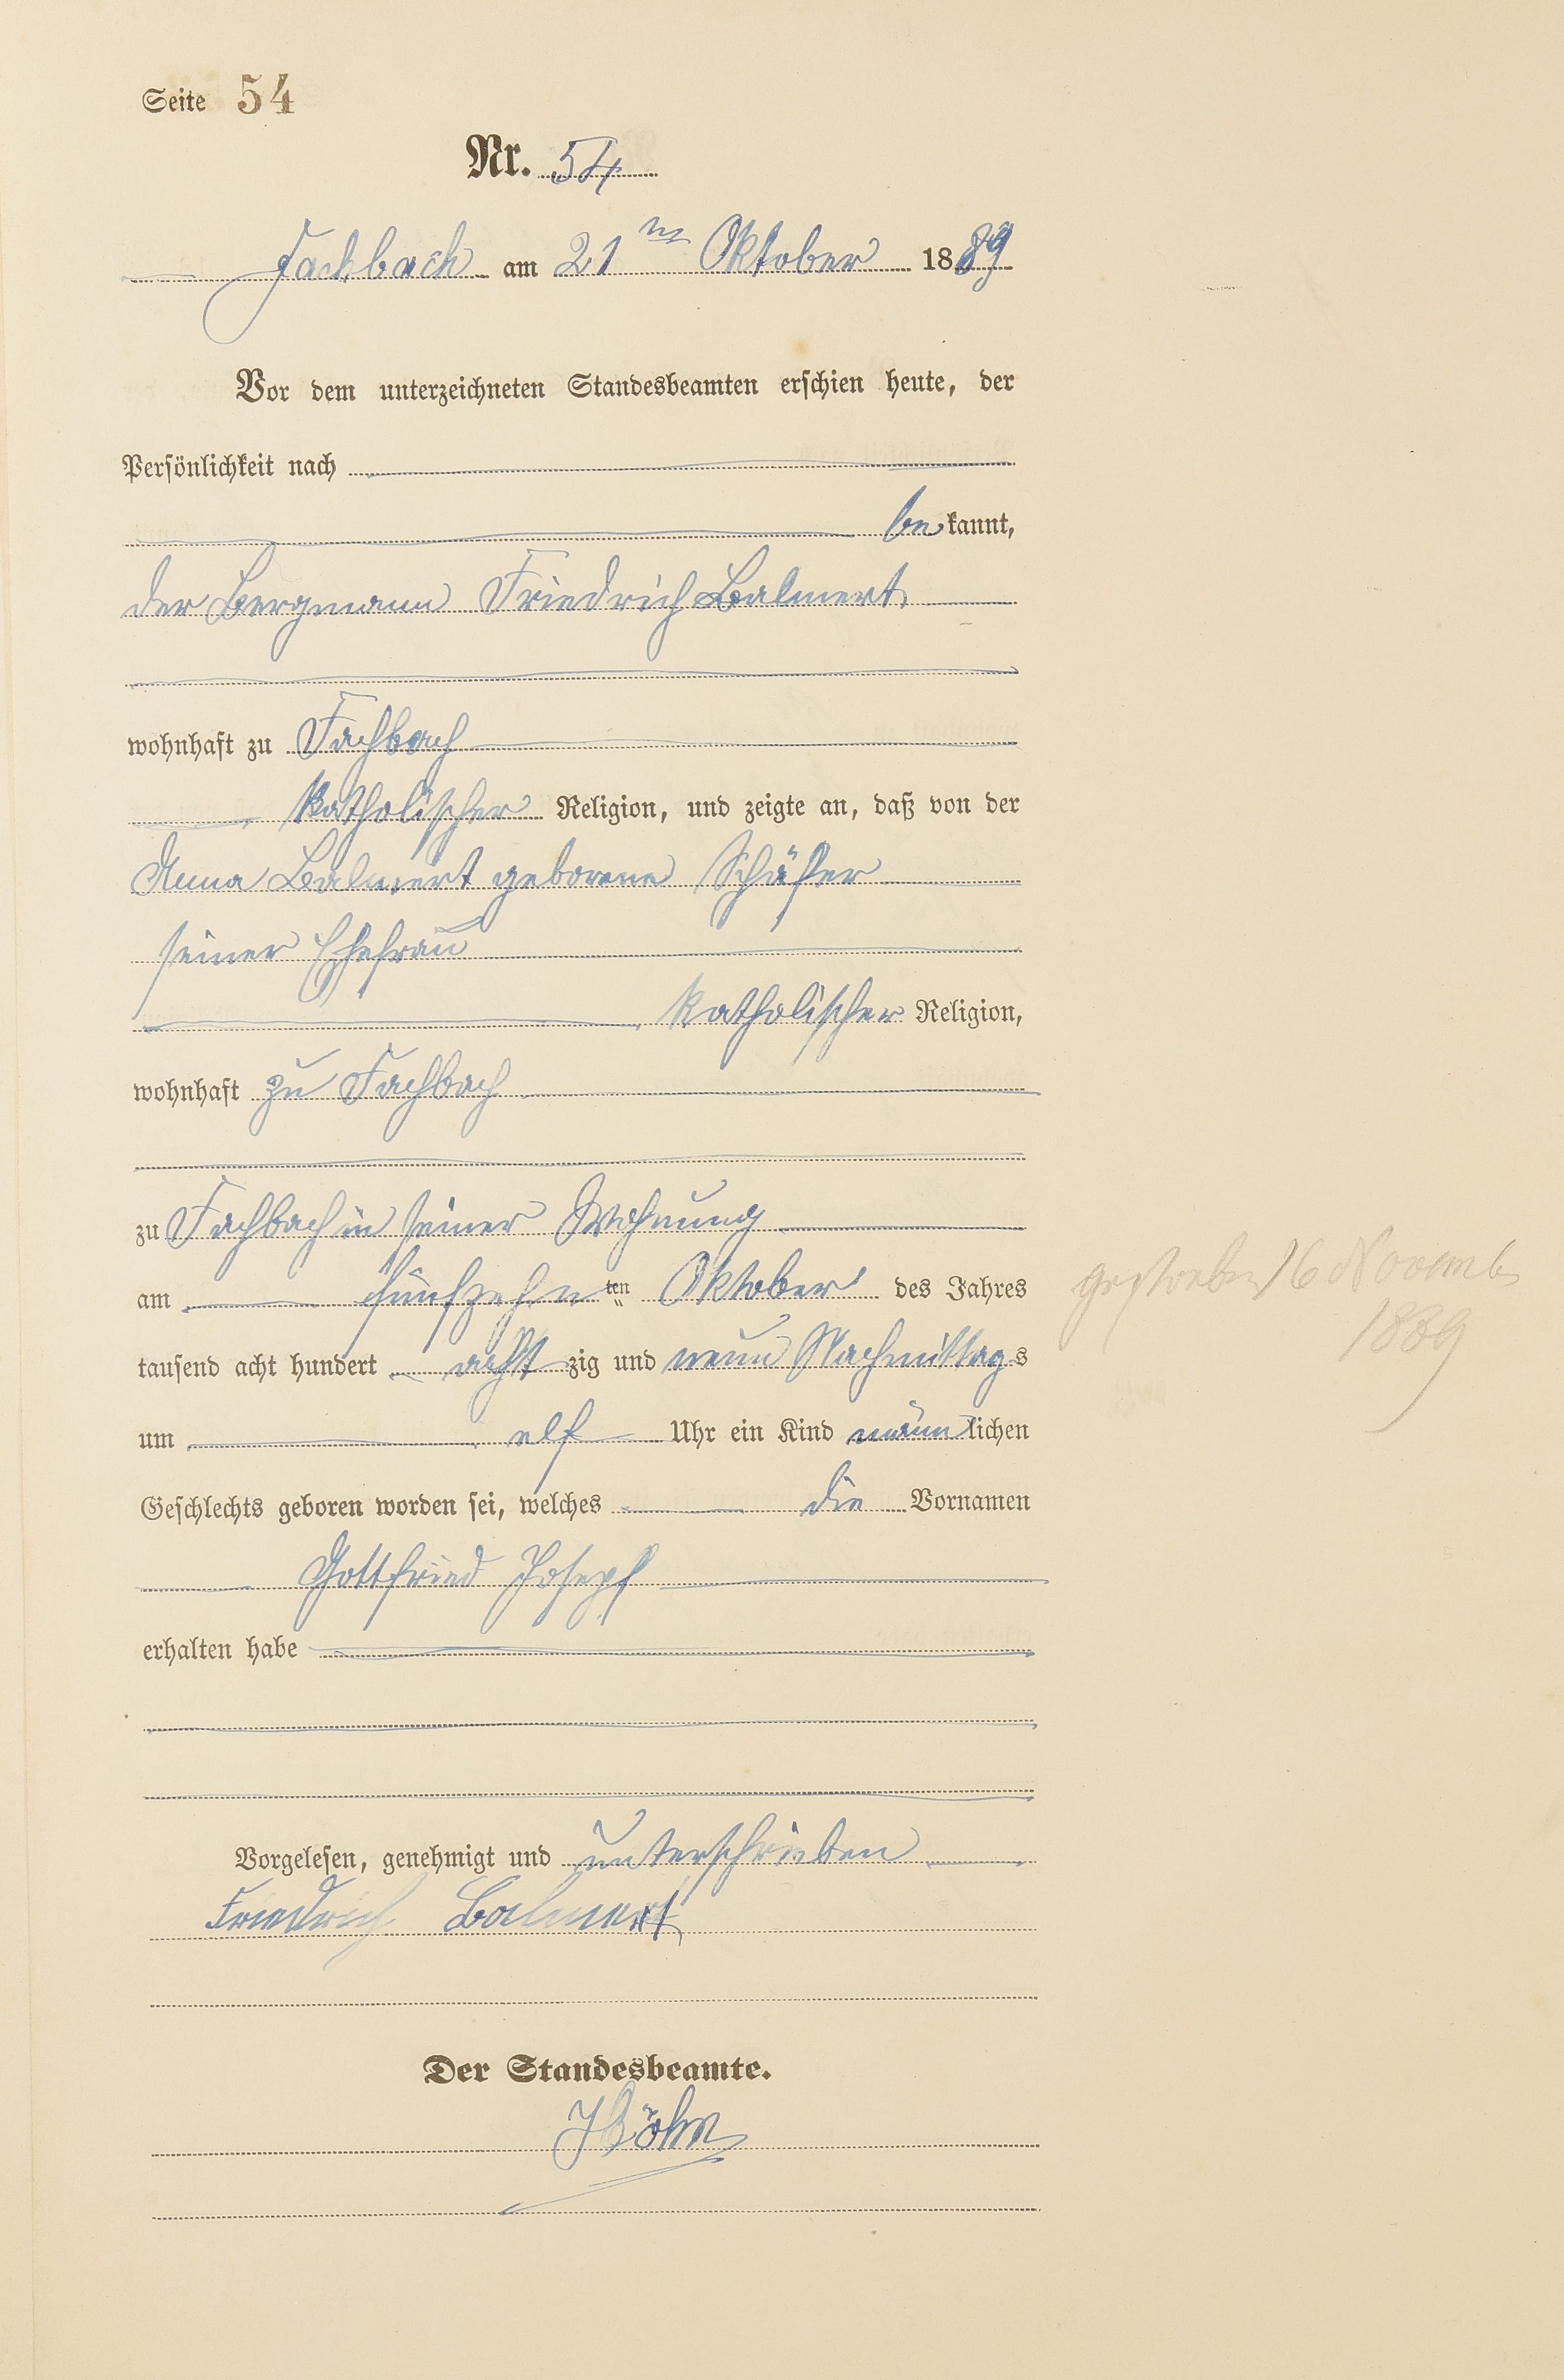 Seite 54
Nr. 54
Fachbach am 21ten Oktober 1889
Vor dem unterzeichneten Standesbeamten erschien heute, der
Persönlichkeit nach
bekannt,
der Bergmann Friedrich Balmert
wohnhaft zu Fachbach
katholischer Religion, und zeigte an, daß von der
Anna Balmert geborene Schäfer
seiner Ehefrau
katholischer Religion,
wohnhaft zu Fachbach
zu Fachbach in seiner Wohnung
am fünfzehnten Oktober des Jahres
tausend acht hundert achtzig und neun Nachmittags
um elf Uhr ein Kind männlichen
Geschlechts geboren worden sei, welches die Vornamen
Gottfried Joseph
erhalten habe
Vorgelesen, genehmigt und unterschrieben
Friedrich Balmert
Der Standesbeamte.
gestorben 16 Novemb
1889